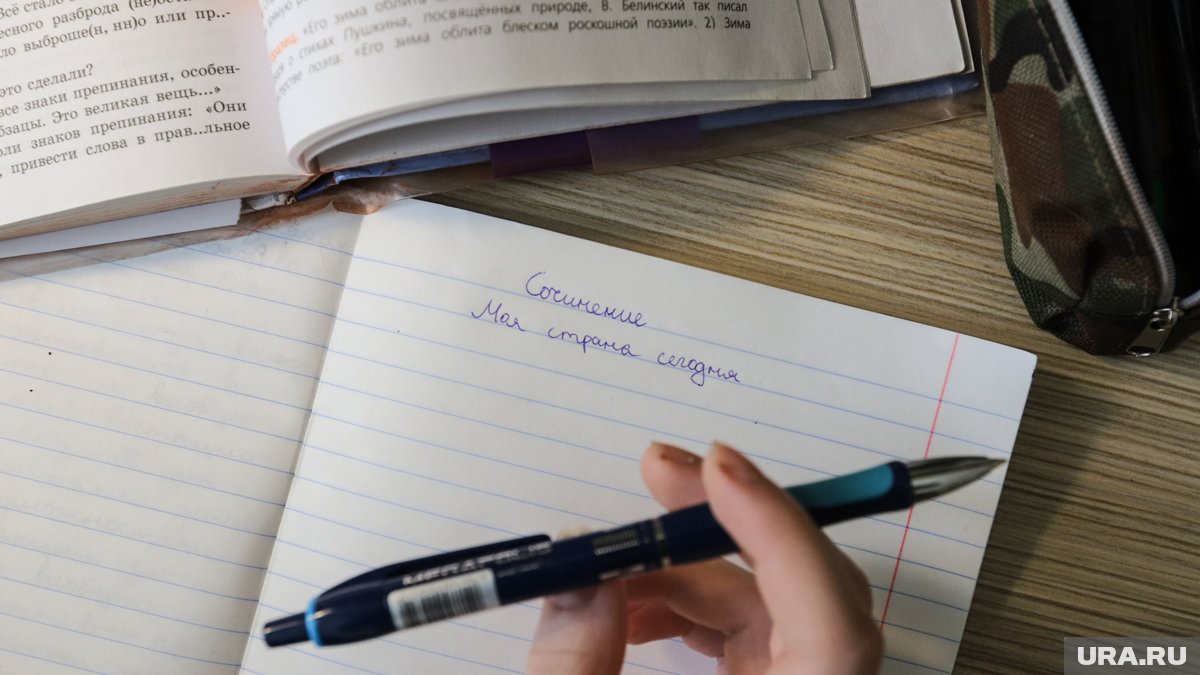 Всё стало
есного разброда (не)ос
ло выброше(н, нн)о или пр..-
это сделали?
все знаки препинания, особен-
бзацы. Это великая вещь...»
оли знаков препинания: «Они
, привести слова в прав..льное
«Его зима облита
посвящённых природе, В. Белинский так писал
о стихах Пушкина, «Его зима облита блеском роскошной поэзии». 2) Зима
поэта:
Сочинение
Моя страна сегодня
URA.RU